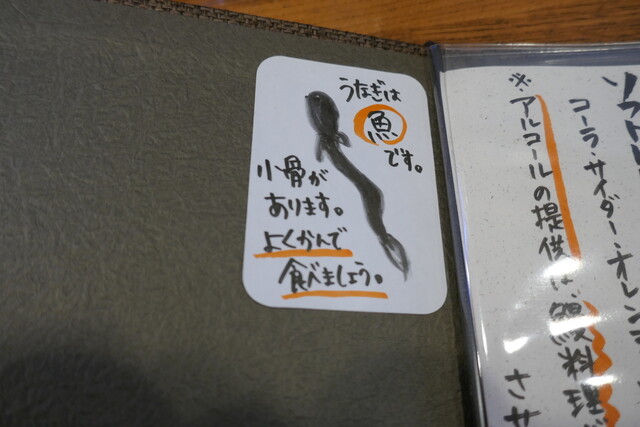 うなぎは
魚
です。
小骨が
あります。
よくかんで
食べましょう。
コーラ・サイダー・オレン
※アルコールの提供は、鰻料理